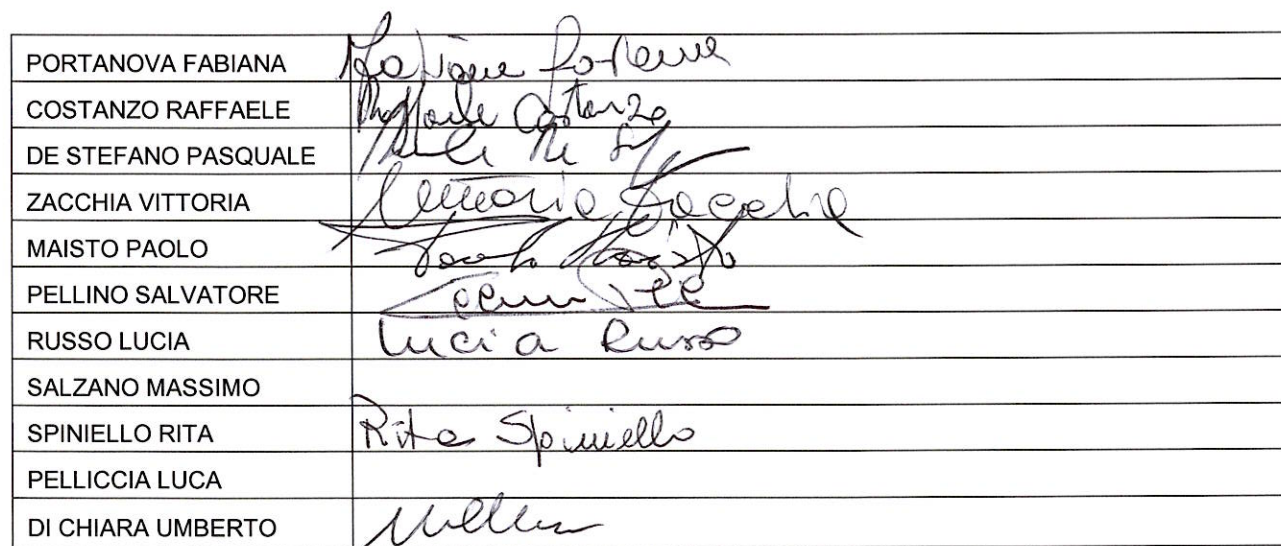 PORTANOVA FABIANA
COSTANZO RAFFAELE Raffaele Costanzo
DE STEFANO PASQUALE
ZACCHIA VITTORIA Vittoria Zacchia
MAISTO PAOLO Paolo Maisto
PELLINO SALVATORE
RUSSO LUCIA Lucia Russo
SALZANO MASSIMO
SPINIELLO RITA Rita Spiniello
PELLICCIA LUCA
DI CHIARA UMBERTO